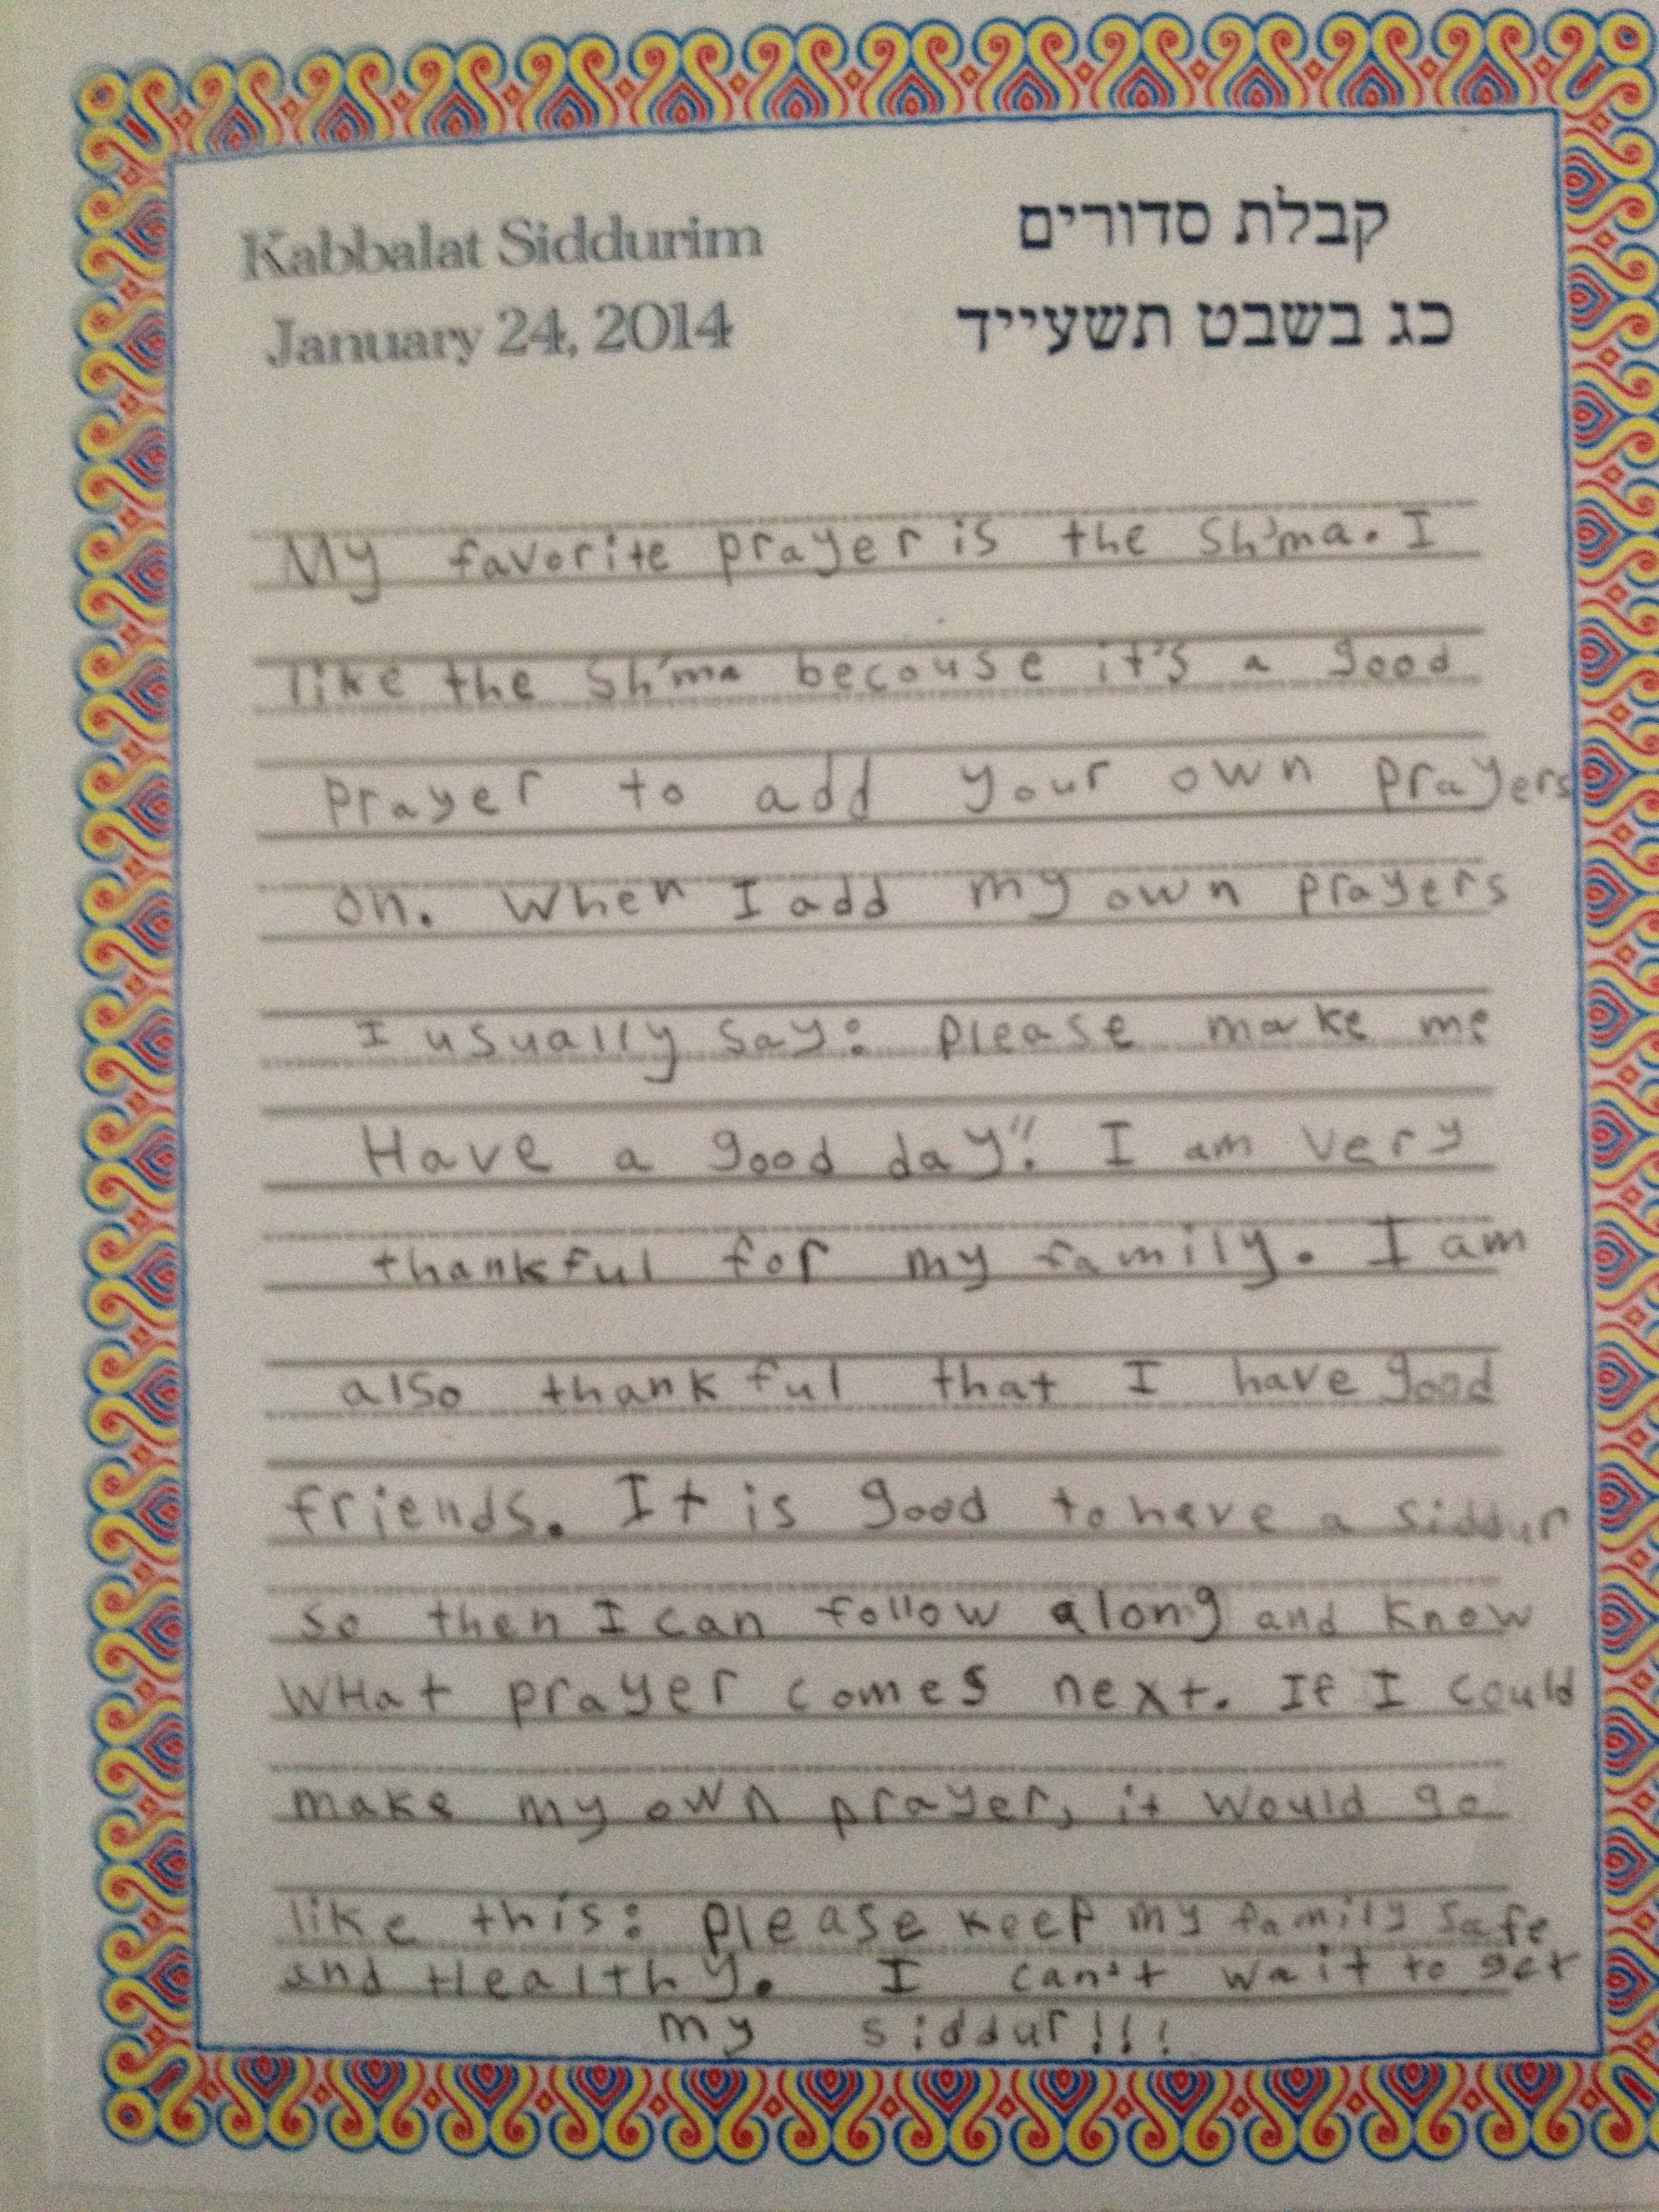 Kabbalat Siddurim
January 24, 2014
קבלת סדורים
כג בשבט תשעייד
My favorite prayer is the Sh'ma. I
like the Sh'ma becouse it's a good
prayer to add your own prayers
on. When I add my own prayers
I usually say: please make me
Have a good day". I am very
thankful for my family. I am
also thankful that I have good
friends. It is good to have a siddur
so then I can follow along and know
WHat prayer comes next. If I could
make my own prayer, it would go
like this: please keep my family safe
and Healthy. I can't wait to get
my siddur!!!